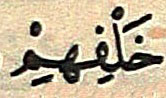 خَلْفِهِمْ